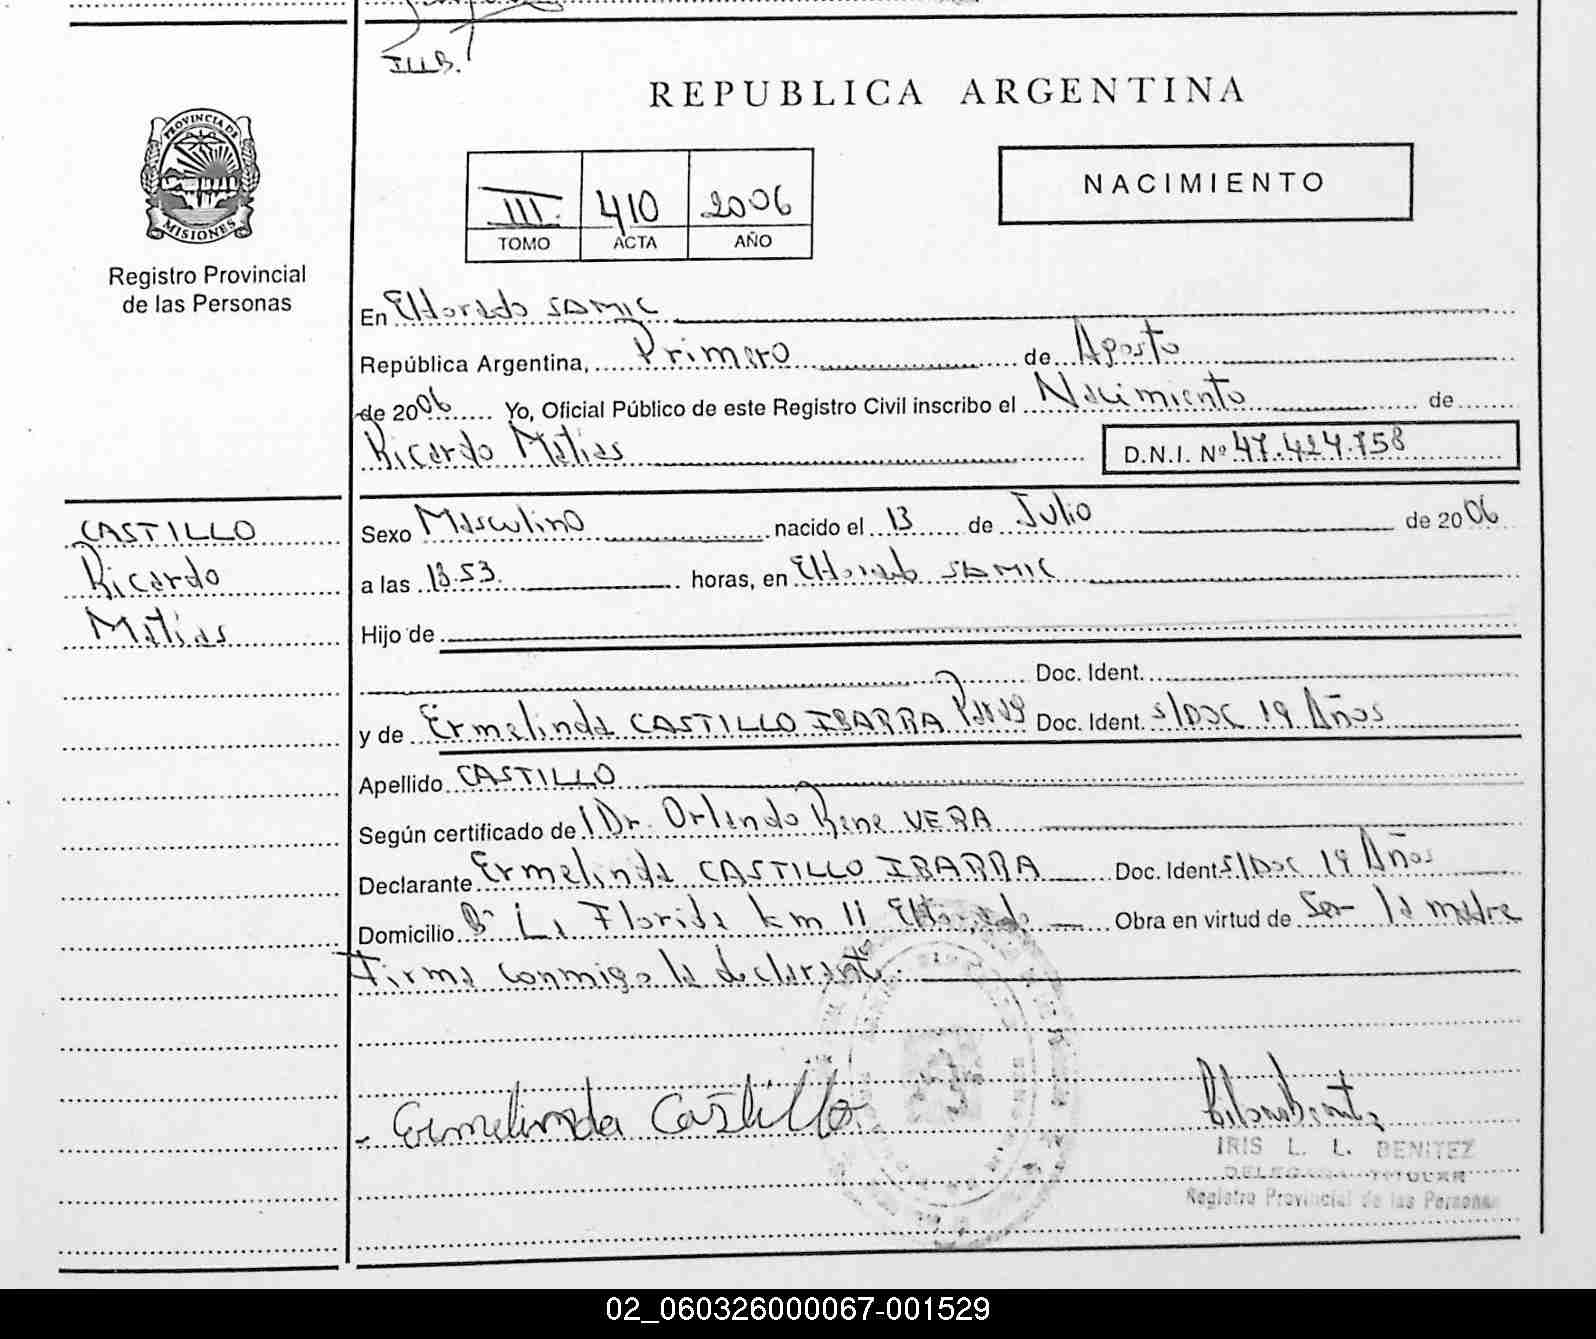 ILLB.
REPUBLICA ARGENTINA
PROVINCIA DE
MISIONES
Registro Provincial
de las Personas
III 410 2006
TOMO ACTA AÑO
NACIMIENTO
En Eldorado SAMIC
República Argentina, Primero de Agosto
de 2006 Yo, Oficial Público de este Registro Civil inscribo el Nacimiento de
Ricardo Matias D.N.I. Nº 47.424.758
CASTILLO
Ricardo
Matias
Sexo Masculino nacido el 13 de Julio de 2006
a las 13.53. horas, en Eldorado SAMIC
Hijo de
Doc. Ident.
y de Ermelinda CASTILLO IBARRA Doc. Ident. s/Doc 19 Años
Apellido CASTILLO
Según certificado de Dr. Orlando Rene VERA
Declarante Ermelinda CASTILLO IBARRA Doc. Ident. s/Doc 19 Años
Domicilio Bº La Florida km 11 Eldorado Obra en virtud de Ser la madre
Firma conmigo la declarante.
Ermelinda Castillo
IRIS L. L. BENITEZ
DELEGADA TITULAR
Registro Provincial de las Personas
02_060326000067-001529